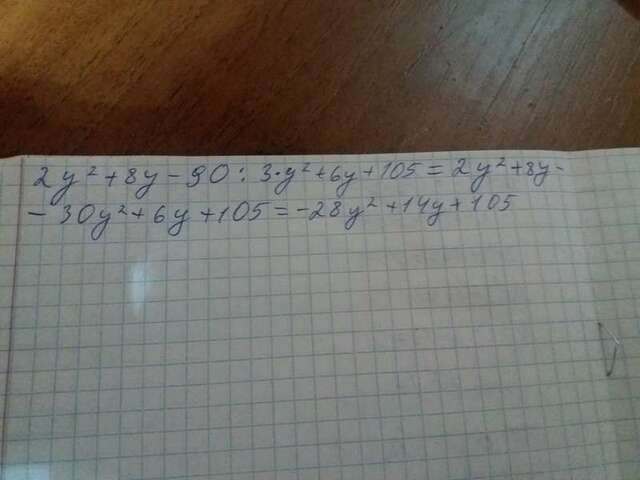 2y² + 8y - 90 : 3 · y² + 6y + 105 = 2y² + 8y -
- 30y² + 6y + 105 = -28y² + 14y + 105